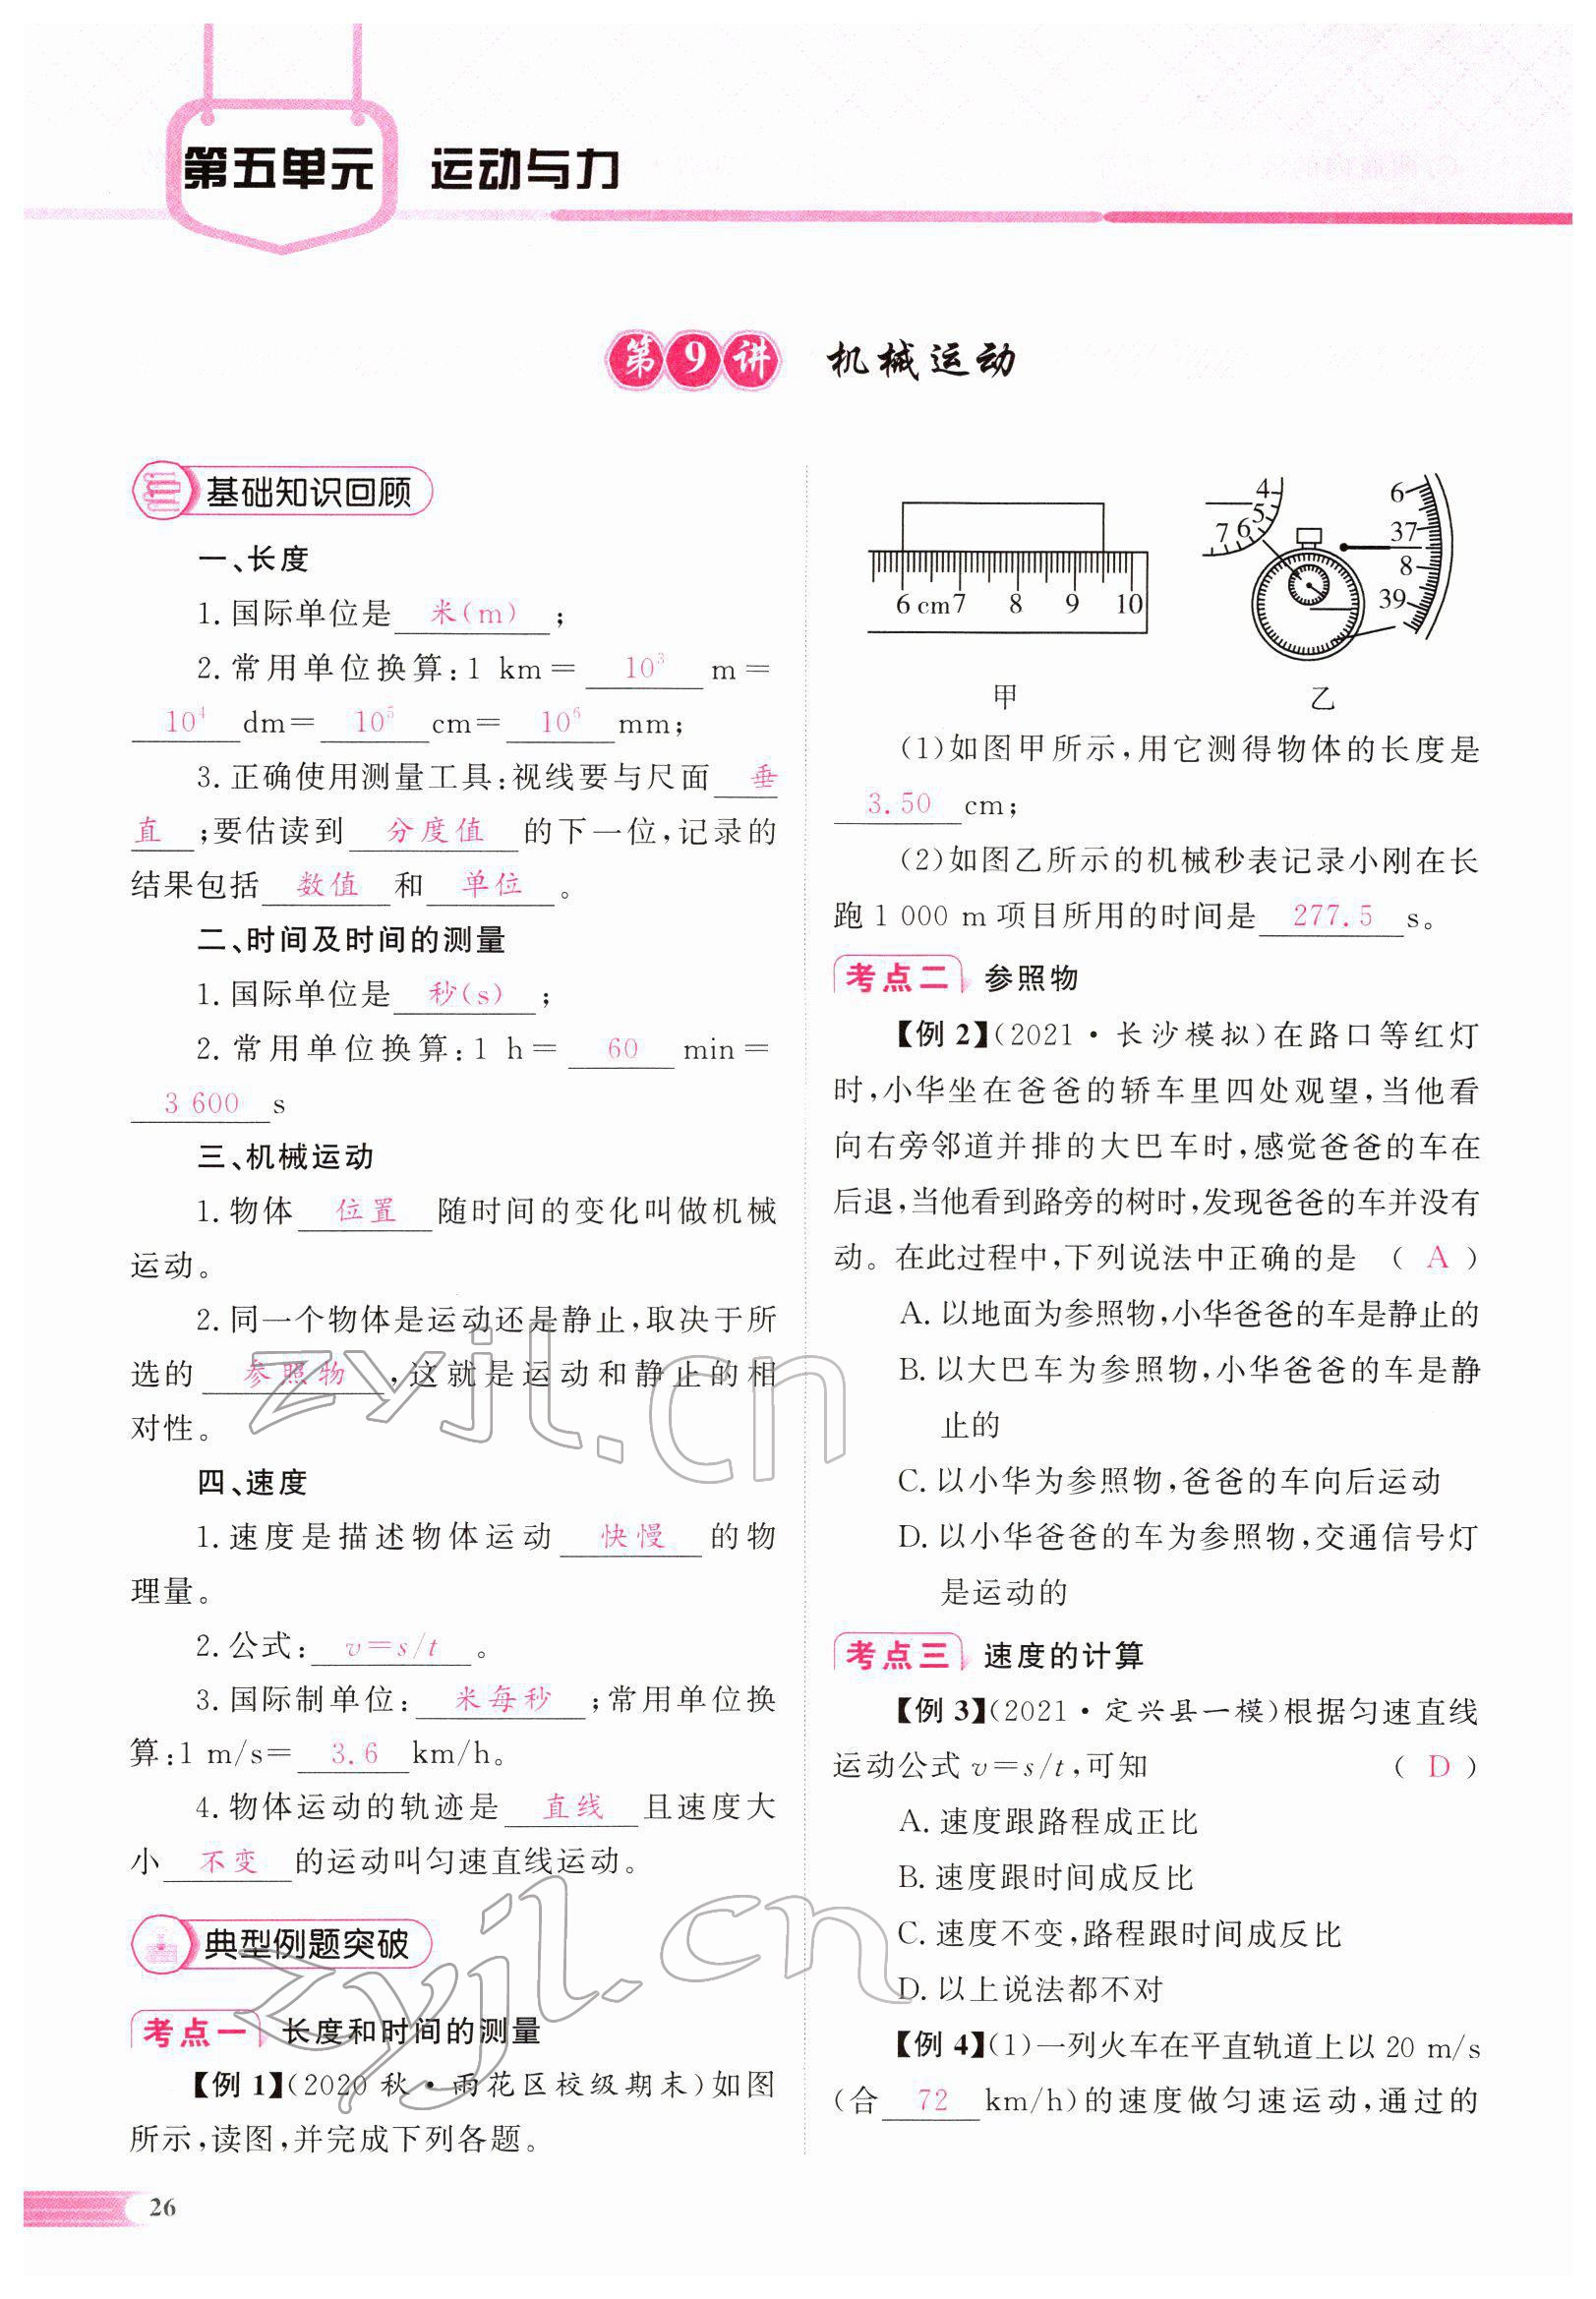 第五单元 运动与力
第9讲 机械运动
基础知识回顾
一、长度
1. 国际单位是 米(m) ;
2. 常用单位换算:1 km= 10³ m=
10⁴ dm= 10⁵ cm= 10⁶ mm;
3. 正确使用测量工具:视线要与尺面 垂
直 ;要估读到 分度值 的下一位,记录的
结果包括 数值 和 单位 。
二、时间及时间的测量
1. 国际单位是 秒(s) ;
2. 常用单位换算:1 h= 60 min=
3 600 s
三、机械运动
1. 物体 位置 随时间的变化叫做机械
运动。
2. 同一个物体是运动还是静止,取决于所
选的 参照物 ,这就是运动和静止的相
对性。
四、速度
1. 速度是描述物体运动 快慢 的物
理量。
2. 公式: v=s/t 。
3. 国际制单位: 米每秒 ;常用单位换
算:1 m/s= 3.6 km/h。
4. 物体运动的轨迹是 直线 且速度大
小 不变 的运动叫匀速直线运动。
典型例题突破
考点一 长度和时间的测量
【例 1】(2020 秋·雨花区校级期末)如图
所示,读图,并完成下列各题。
26
6 cm 7 8 9 10
4 5 6 7
6 37 8 39
甲 乙
(1)如图甲所示,用它测得物体的长度是
3.50 cm;
(2)如图乙所示的机械秒表记录小刚在长
跑 1 000 m 项目所用的时间是 277.5 s。
考点二 参照物
【例 2】(2021·长沙模拟)在路口等红灯
时,小华坐在爸爸的轿车里四处观望,当他看
向右旁邻道并排的大巴车时,感觉爸爸的车在
后退,当他看到路旁的树时,发现爸爸的车并没有
动。在此过程中,下列说法中正确的是 ( A )
A. 以地面为参照物,小华爸爸的车是静止的
B. 以大巴车为参照物,小华爸爸的车是静
止的
C. 以小华为参照物,爸爸的车向后运动
D. 以小华爸爸的车为参照物,交通信号灯
是运动的
考点三 速度的计算
【例 3】(2021·定兴县一模)根据匀速直线
运动公式 v=s/t,可知 ( D )
A. 速度跟路程成正比
B. 速度跟时间成反比
C. 速度不变,路程跟时间成反比
D. 以上说法都不对
【例 4】(1)一列火车在平直轨道上以 20 m/s
(合 72 km/h)的速度做匀速运动,通过的
zyjl.cn
zyjl.cn